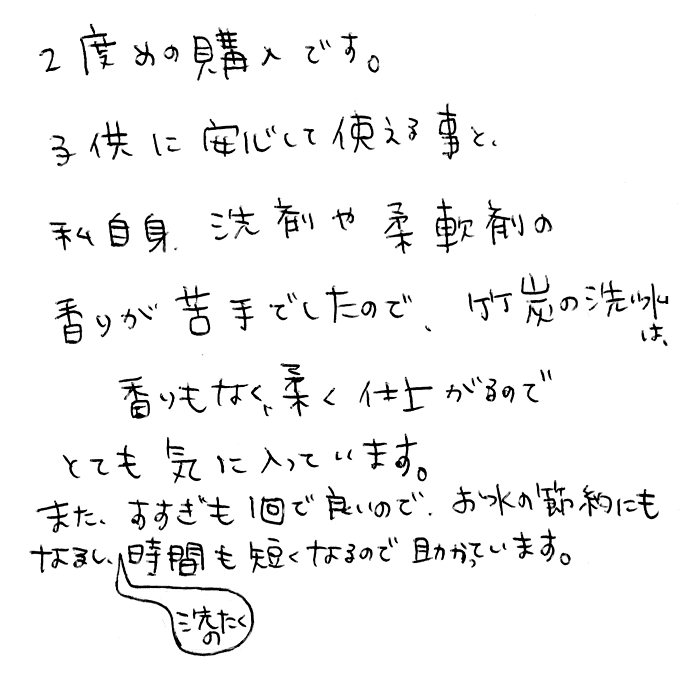 2度めの購入です。
子供に安心して使える事と、
私自身、洗剤や柔軟剤の
香りが苦手でしたので、竹炭の洗水
は、
香りもなく、柔く仕上がるので
とても気に入っています。
また、すすぎも1回で良いので、お水の節約にも
なるし、時間も短くなるので助かっています。
洗たく
の